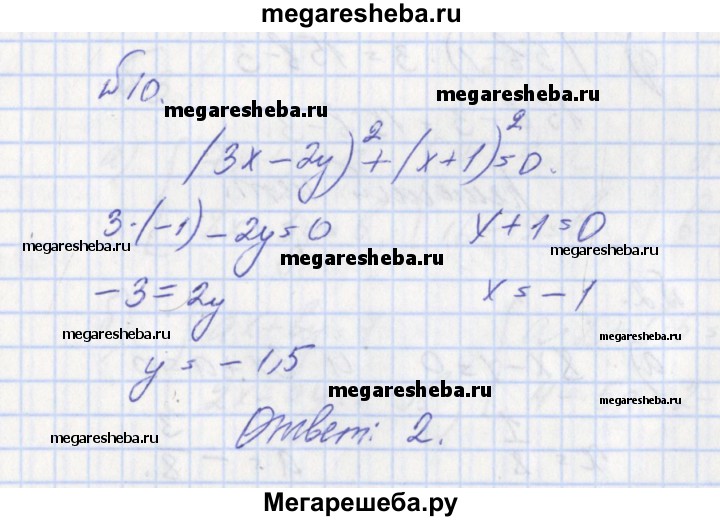 megaresheba.ru
№10.
megaresheba.ru megaresheba.ru
(3x-2y)²+(x+1)²=0.
3·(-1)-2y=0 x+1=0
megaresheba.ru megaresheba.ru megaresheba.ru
-3=2y x=-1
megaresheba.ru megaresheba.ru megaresheba.ru
y=-1,5
megaresheba.ru megaresheba.ru
Ответ: 2.
megaresheba.ru megaresheba.ru
Мегарешеба.ру